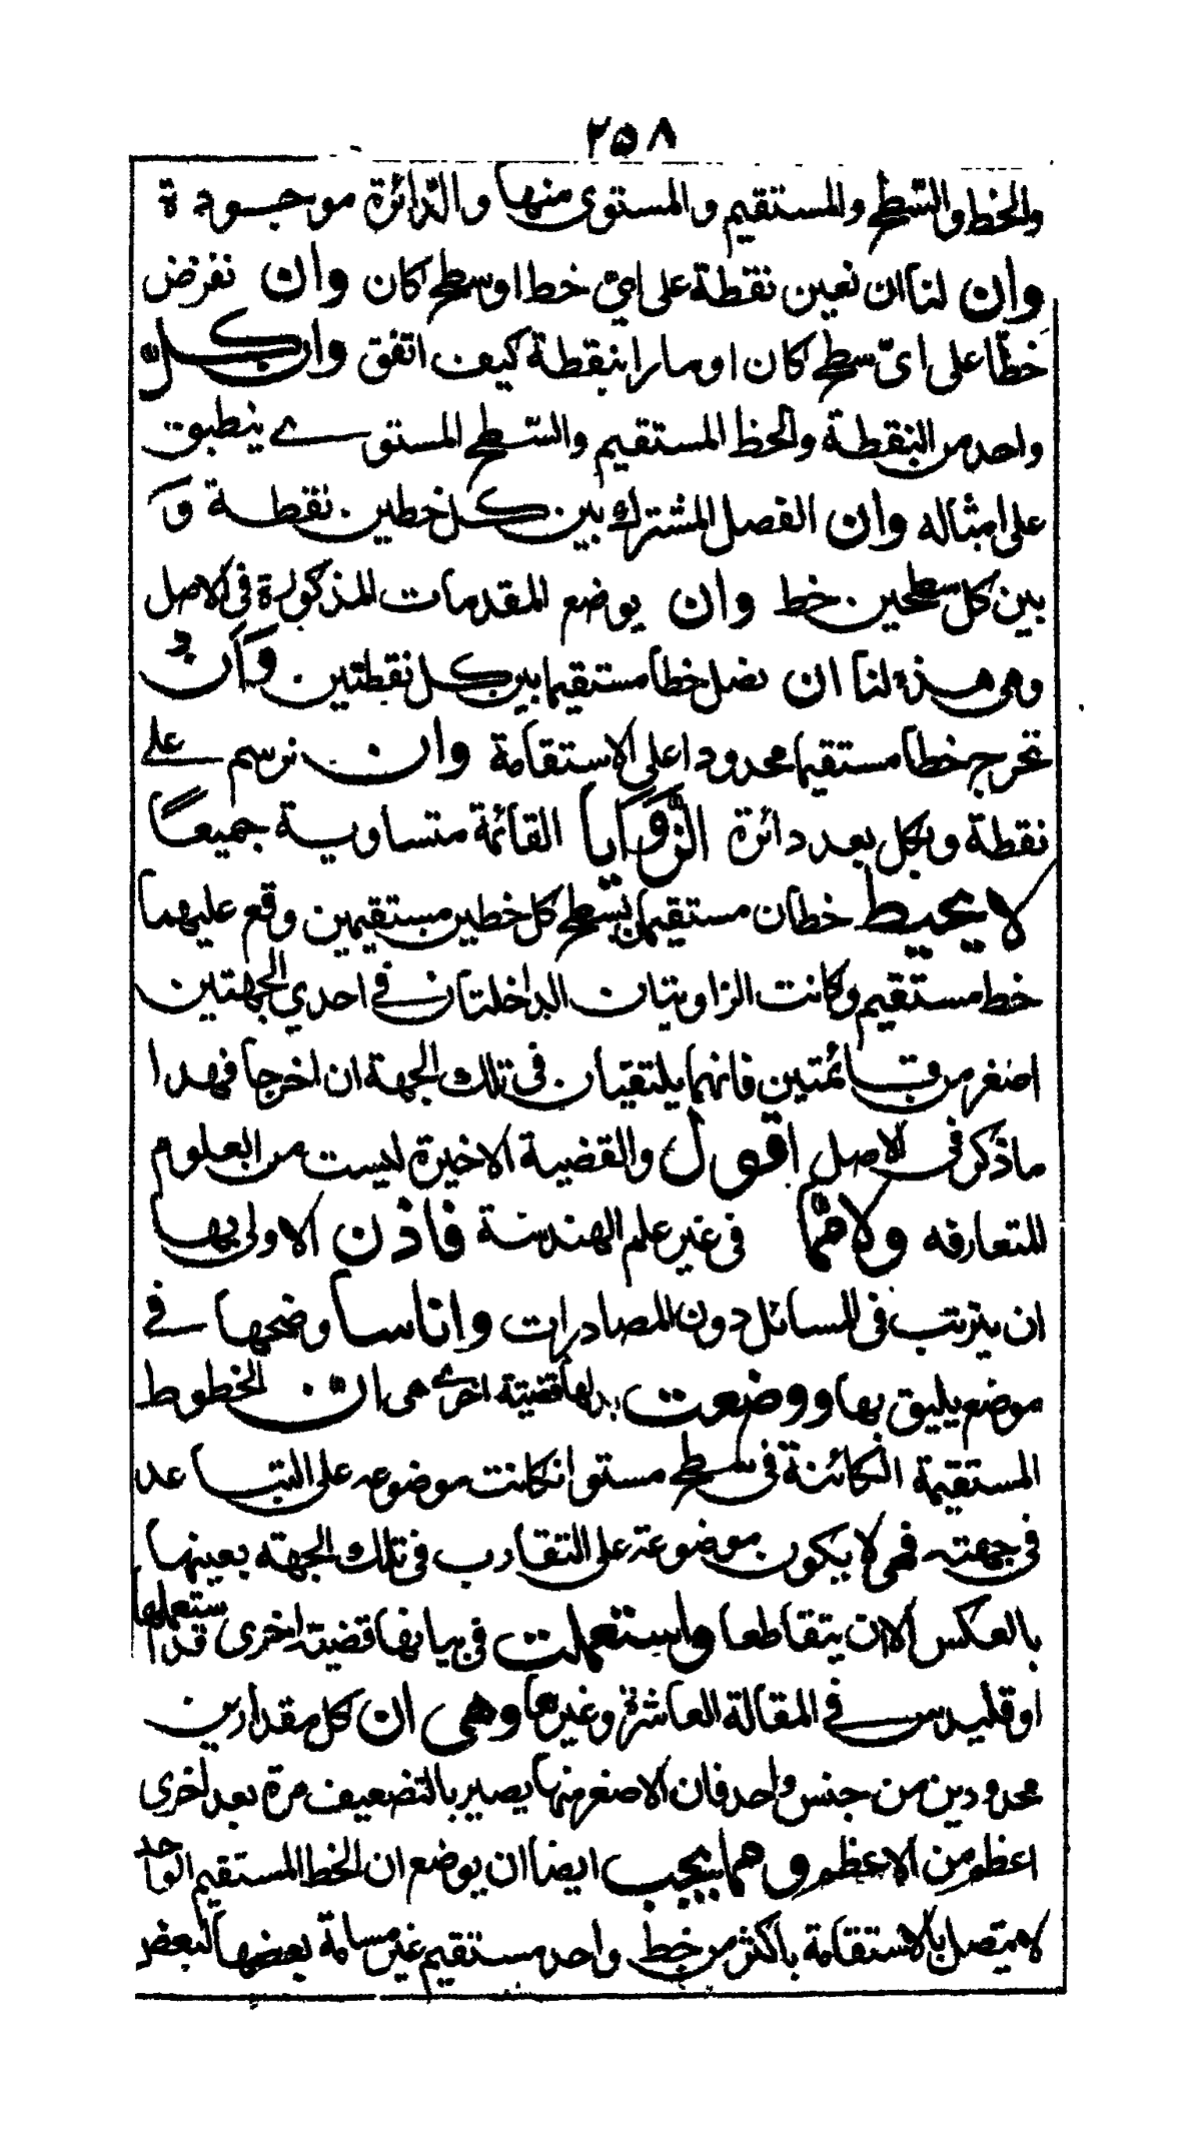 ٢٥٨
والخط والسّطح والمستقيم والمستوى منها والدّائرة موجودة
وان لنا ان نعين نقطة على اىّ خط او سطح كان وان نفرض
خطّا على اىّ سطح كان او مارا بنقطة كيف اتفق وان كلّ
واحد من النقطة والخط المستقيم والسّطح المستوے ينطبق
على امثاله وان الفصل المشترك بين كل خطين نقطة وَ
بين كل سطحين خط وان يوضع المقدمات المذكورة فى الاصل
وهى هذه لنا ان نصل خطا مستقيما بين كل نقطتين وَاَنْ
نخرج خطا مستقيما محدودا على الاستقامة وان نرسم علے
نقطة وبكل بعد دائرة الزَّوَايا القائمة متساوية جميعًا
لا يحيط خطان مستقيمان بسطح كل خطين مستقيمين وقع عليهما
خط مستقيم وكانت الزاويتان الداخلتان فے احدي الجهتين
اصغر من قائمتين فانهما يلتقيان فى تلك الجهة ان اخرجا فهذا
ماذكر فى الاصل اقول والقضية الاخيرة ليست من العلوم
المتعارفه ولا ممّا فى غير علم الهندسة فاذن الاولى بها
ان يترتب فى المسائل دون المصادرات وانا ساوضحها فے
موضع يليق بها ووضعت بدلها قضيتة اخرے هى ان الخطوط
المستقيمة الكائنة فى سطح مستو انكانت موضوعه على التباعد
فى جهته فهى لا يكون موضوعة على التقارب فى تلك الجهته بعينها
بالعكس الا ان يتقاطعا واستعملت فى بيانها قضيته اخرى قد استعملها
اوقليدس فے المقالة العاشرة وغيرها وهى ان كل مقدارين
محدودين من جنس واحد فان الاصغر منها يصير بالتضعيف مرة بعد اخرى
اعظم من الاعظم و مما يجب ايضا ان يوضع ان الخط المستقيم الواحد
لا يتصل بالاستقامة باكثر من خط واحد مستقيم غير مسامتة بعضها لبعض